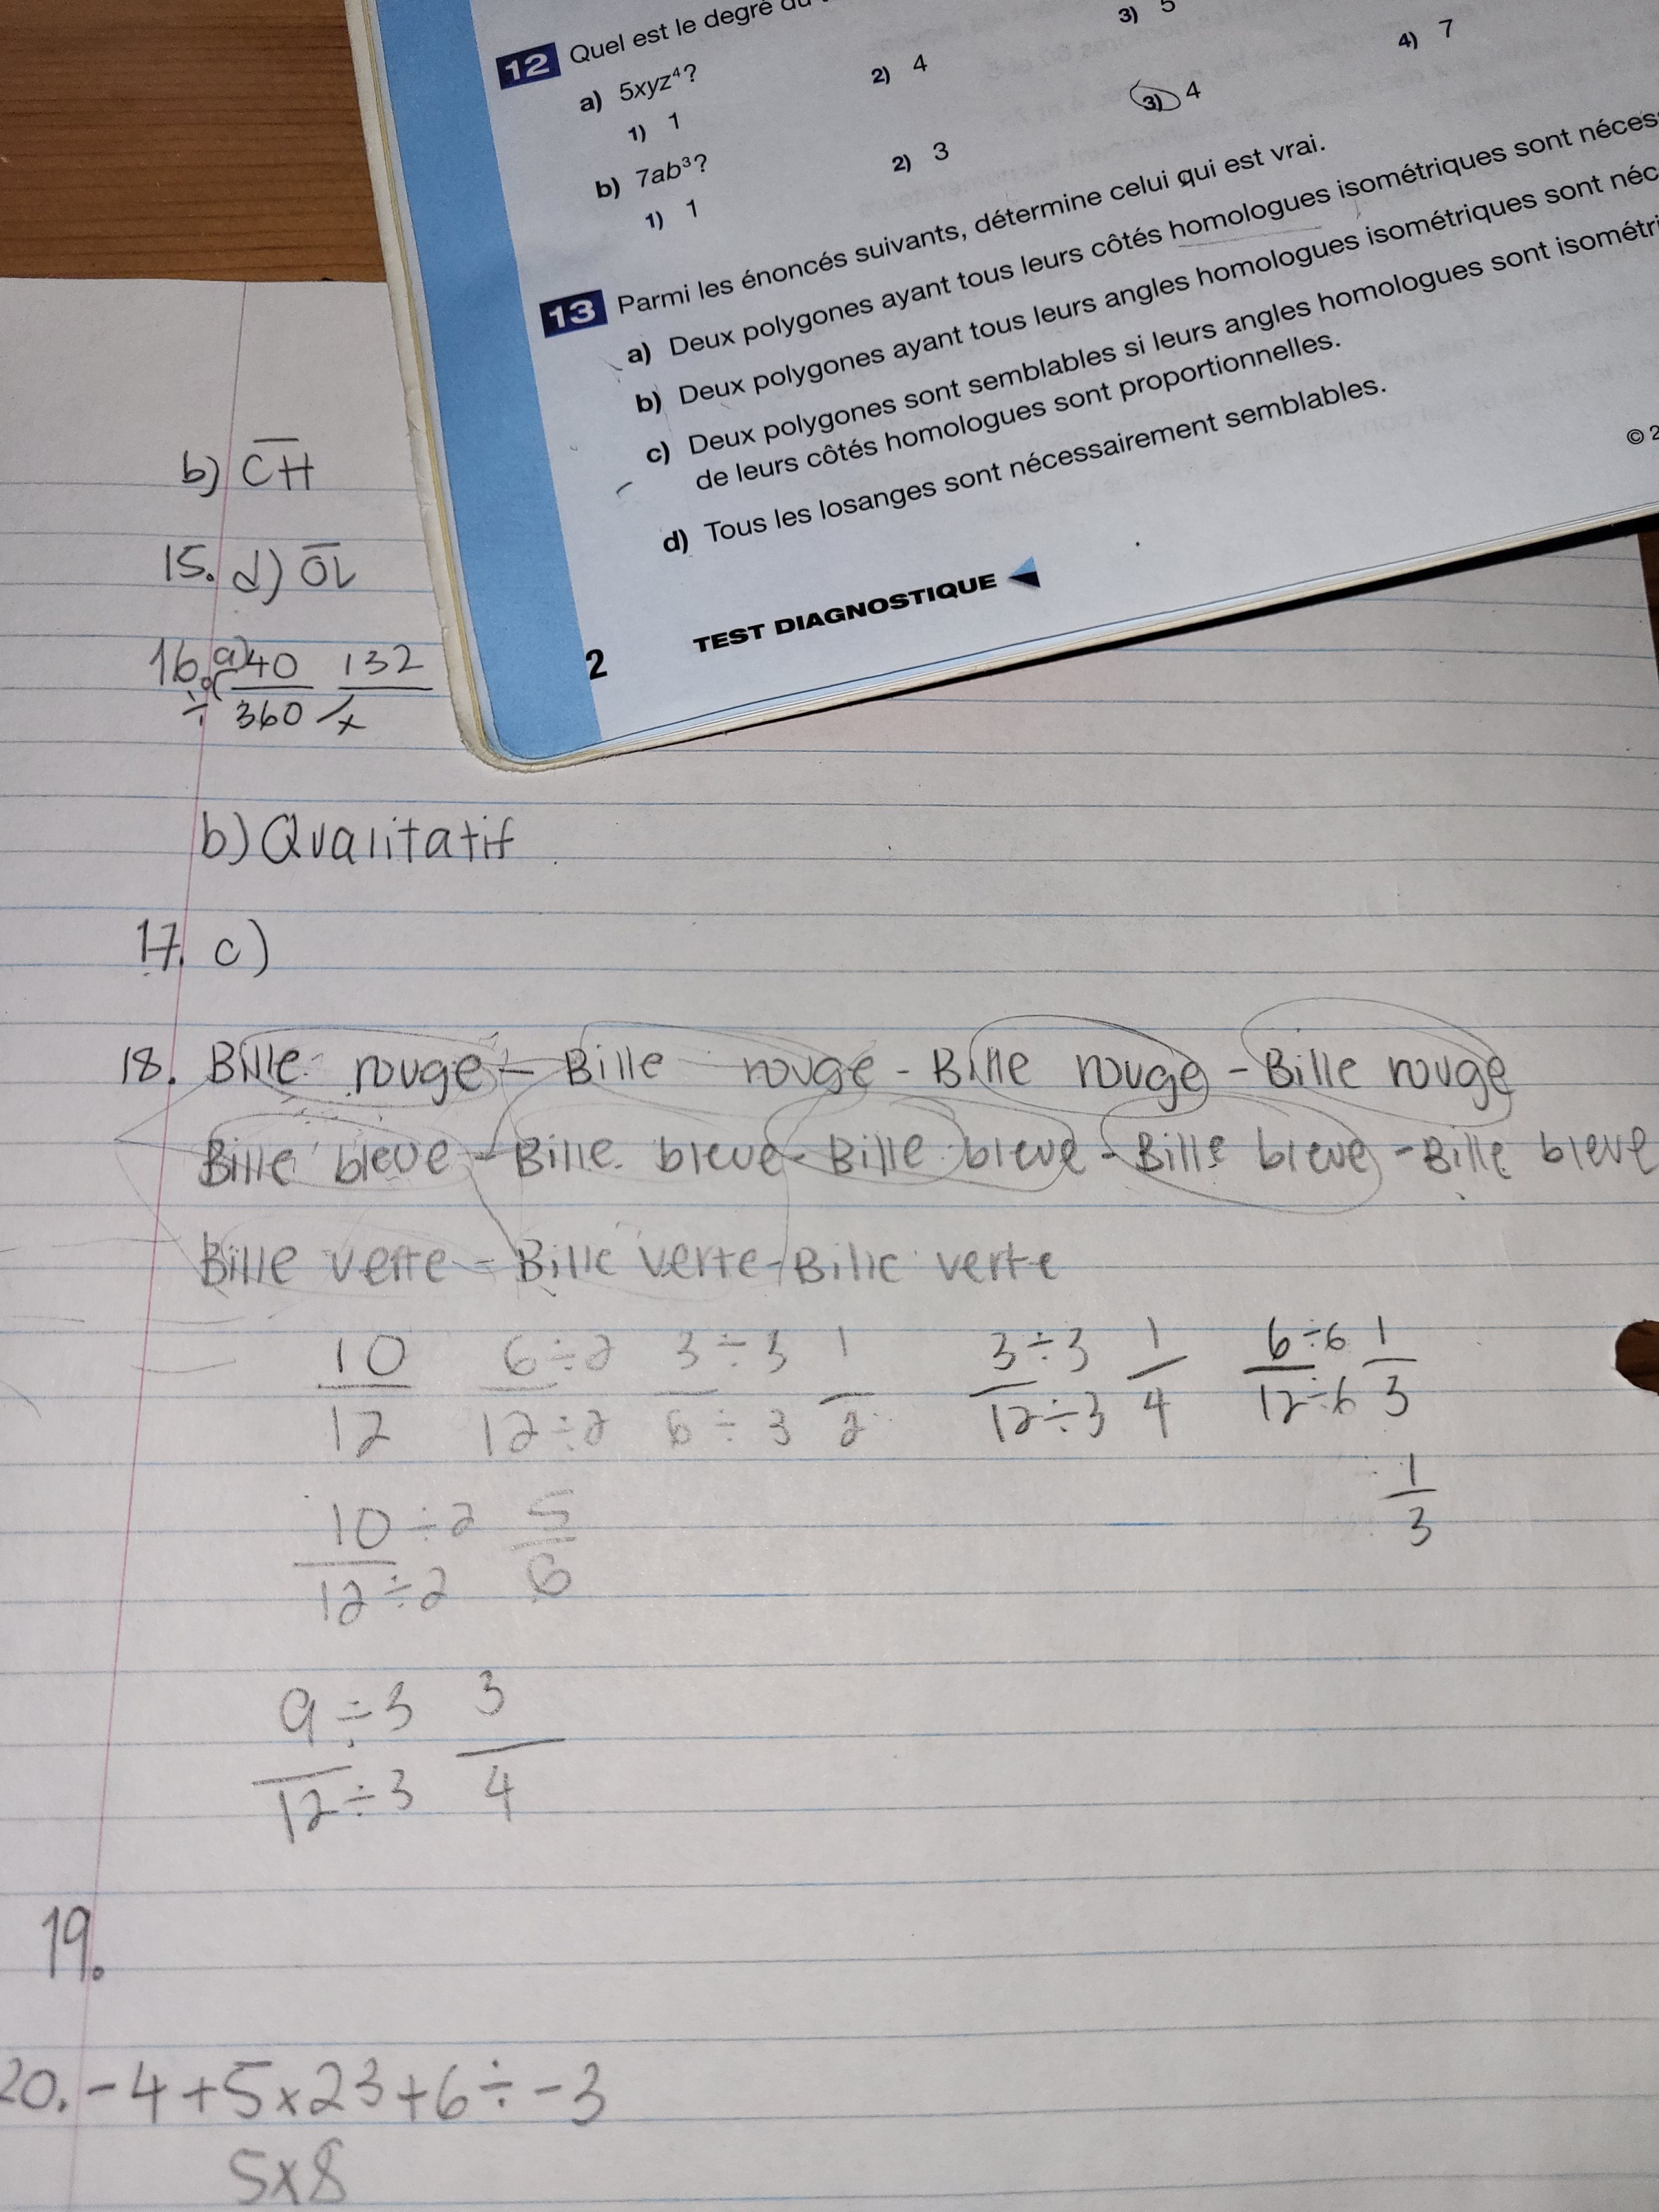 12 Quel est le degré du
a) 5xyz⁴?
1) 1 2) 4 3) 5 4) 7
b) 7ab³?
1) 1 2) 3 3) 4
13 Parmi les énoncés suivants, détermine celui qui est vrai.
a) Deux polygones ayant tous leurs côtés homologues isométriques sont néces
b) Deux polygones ayant tous leurs angles homologues isométriques sont néc
c) Deux polygones sont semblables si leurs angles homologues sont isométri
de leurs côtés homologues sont proportionnelles.
d) Tous les losanges sont nécessairement semblables.
© 2
2 TEST DIAGNOSTIQUE
b) C̅H̅
15. d) O̅L̅
16. a) 40 132
÷ 360 x
b) Qualitatif
17. c)
18. Bille rouge - Bille rouge - Bille rouge - Bille rouge
Bille bleue - Bille bleue - Bille bleue - Bille bleue - Bille bleue
Bille verte - Bille verte - Bille verte
10 6÷2 3÷3 1 3÷3 1 6÷6 1
12 12÷2 6÷3 2 12÷3 4 12÷6 3
1
3
10÷2 5
12÷2 6
9÷3 3
12÷3 4
19.
20. -4+5x23+6÷-3
5x8